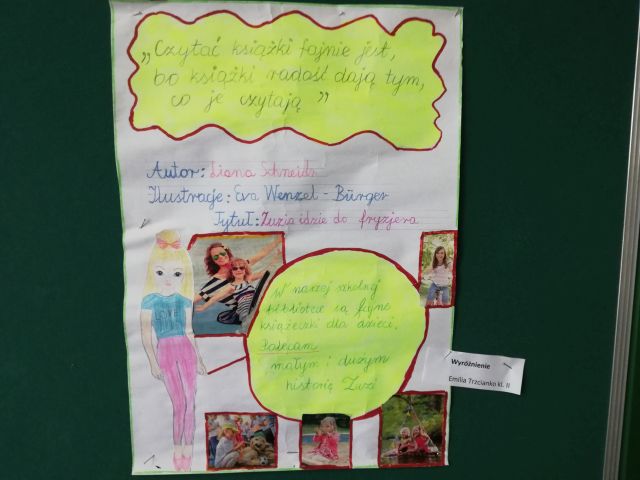 „Czytać książki fajnie jest,
bo książki radość dają tym,
co je czytają”
Autor: Liana Schneider
Ilustracje: Eva Wenzel - Bürger
Tytuł: Zuzia idzie do fryzjera
W naszej szkolnej
bibliotece są fajne
książeczki dla dzieci.
Polecam
małym i dużym
historię Zuzi
Wyróżnienie
Emilia Trzcianko kl. II